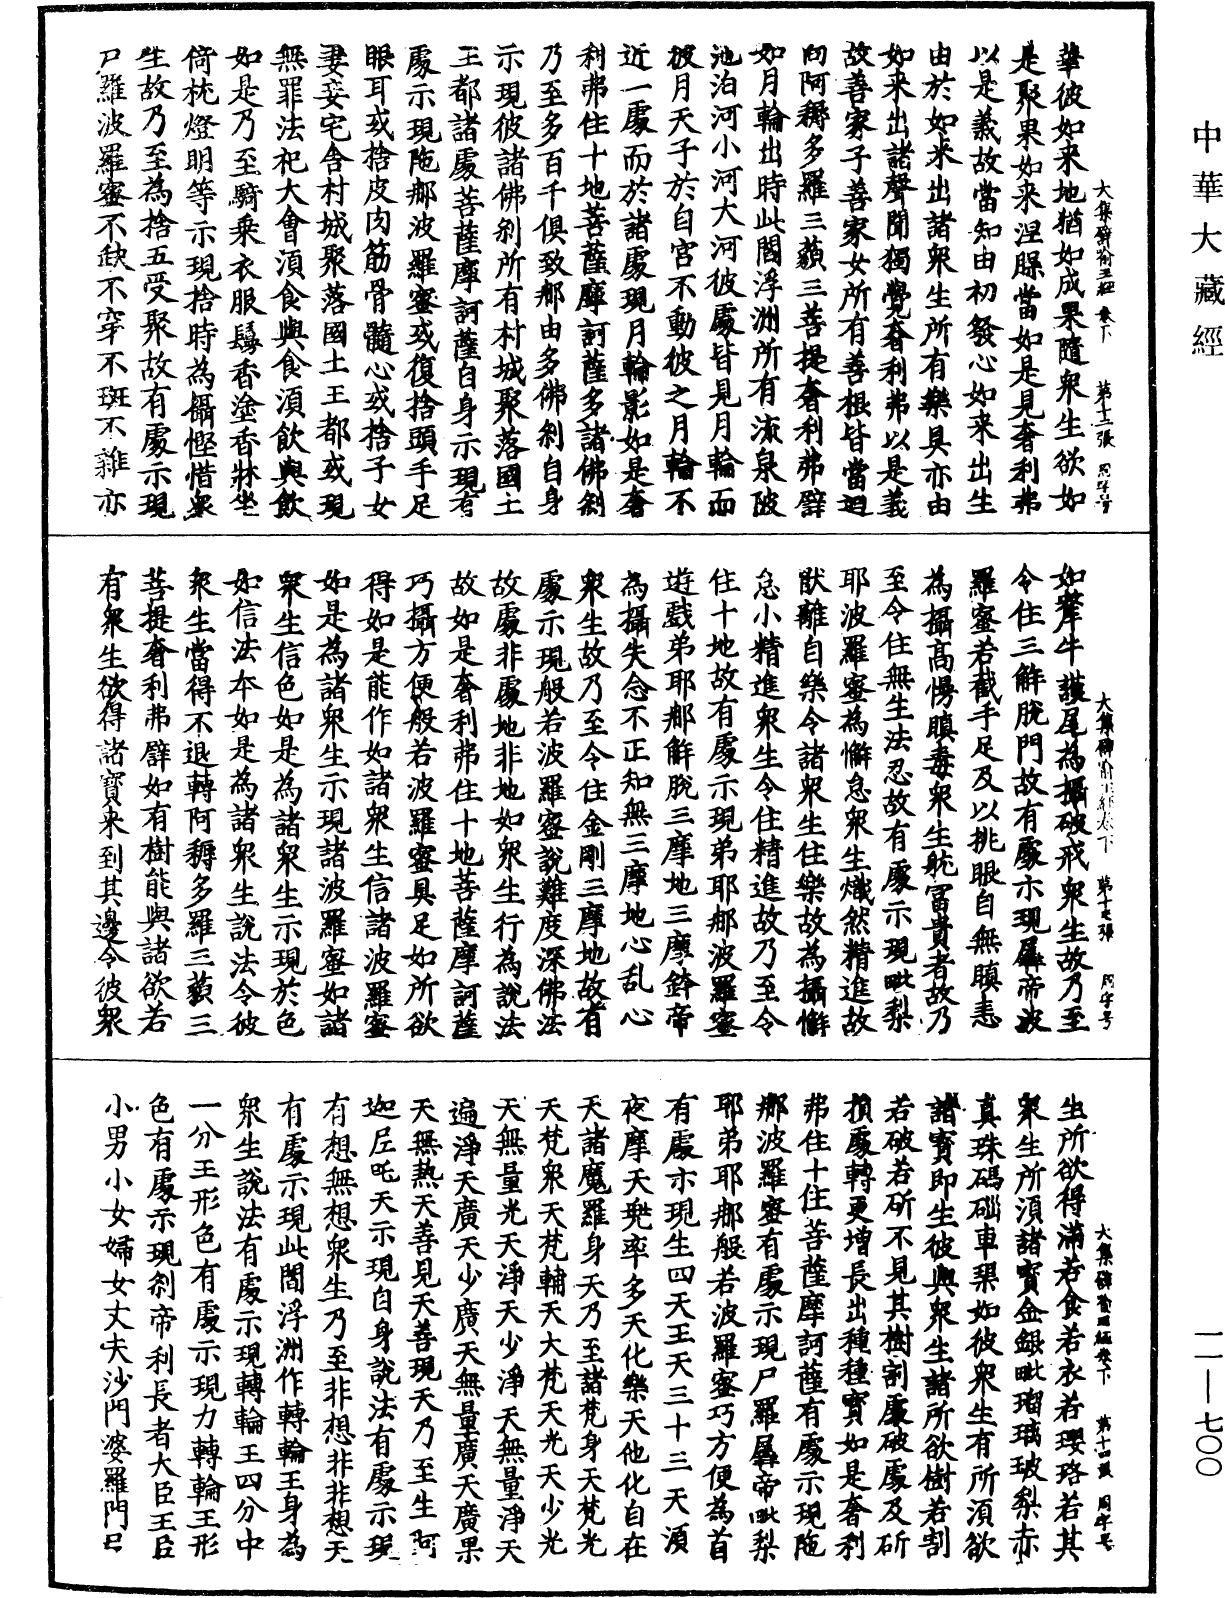 中華大藏經
大集譬喻王經卷下 第十二張 周字号
華彼如来地猶如成果隨衆生欲如
是聚果如来涅槃當如是見奢利弗
以是義故當知由初發心如来出生
由於如来出諸衆生所有樂具亦由
如来出諸聲聞獨覺奢利弗以是義
故善家子善家女所有善根皆當迴
向阿耨多羅三藐三菩提奢利弗譬
如月輪出時此閻浮洲所有流泉陂
池泊河小河大河彼處皆見月輪而
彼月天子於自宮不動彼之月輪不
近一處而於諸處現月輪影如是奢
利弗住十地菩薩摩訶薩多諸佛剎
乃至多百千俱致那由多佛剎自身
示現彼諸佛剎所有村城聚落國土
王都諸處菩薩摩訶薩自身示現有
處示現陁那波羅蜜或復捨頭手足
眼耳或捨皮肉筋骨髓心或捨子女
妻妾宅舍村城聚落國土王都或現
無罪法祀大會湏食與食湏飲與飲
如是乃至騎乘衣服鬘香塗香牀坐
倚枕燈明等示現捨時為攝慳惜衆
生故乃至為捨五受聚故有處示現
尸羅波羅蜜不缺不穿不斑不雜亦
大集譬喻王經卷下 第十三張 周字号
如犛牛護尾為攝破戒衆生故乃至
令住三解脫門故有處示現羼帝波
羅蜜若截手足及以挑眼自無瞋恚
為攝高慢瞋毒衆生㿂冨貴者故乃
至令住無生法忍故有處示現毗梨
耶波羅蜜為懈怠衆生熾然精進故
猒離自樂令諸衆生住樂故為攝懈
怠小精進衆生令住精進故乃至令
住十地故有處示現弟耶那波羅蜜
遊戲弟耶那解脫三摩地三摩鉢帝
為攝失念不正知無三摩地心乱心
衆生故乃至令住金剛三摩地故有
處示現般若波羅蜜說難度深佛法
故處非處地非地如衆生行為說法
故如是奢利弗住十地菩薩摩訶薩
巧攝方便般若波羅蜜具足如所欲
得如是能作如諸衆生信諸波羅蜜
如是為諸衆生示現諸波羅蜜如諸
衆生信色如是為諸衆生示現於色
如信法夲如是為諸衆生說法令彼
衆生當得不退轉阿耨多羅三藐三
菩提奢利弗譬如有樹能與諸欲若
有衆生欲得諸寶来到其邊令彼衆
大集譬喻王經卷下 第十四張 周字号
生所欲得滿若食若衣若瓔珞若其
衆生所湏諸寶金銀毗瑠璃玻梨赤
真珠碼碯車璖如彼衆生有所湏欲
諸寶即生彼與衆生諸所欲樹若割
若破若斫不見其樹割處破處及斫
損處轉更增長出種種寶如是奢利
弗住十住菩薩摩訶薩有處示現陁
那波羅蜜有處示現尸羅羼帝毗梨
耶弟耶那般若波羅蜜巧方便為首
有處示現生四天王天三十三天湏
夜摩天兜率多天化樂天他化自在
天諸魔羅身天乃至諸梵身天梵光
天梵衆天梵輔天大梵天光天少光
天無量光天淨天少淨天無量淨天
遍淨天廣天少廣天無量廣天廣果
天無熱天善見天善現天乃至生阿
迦尼吒天示現自身說法有處示現
有想無想衆生乃至非想非非想天
有處示現此閻浮洲作轉輪王身為
衆生說法有處示現轉輪王四分中
一分王形色有處示現力轉輪王形
色有處示現剎帝利長者大臣王臣
小男小女婦女丈夫沙門婆羅門尸
一一—七〇〇